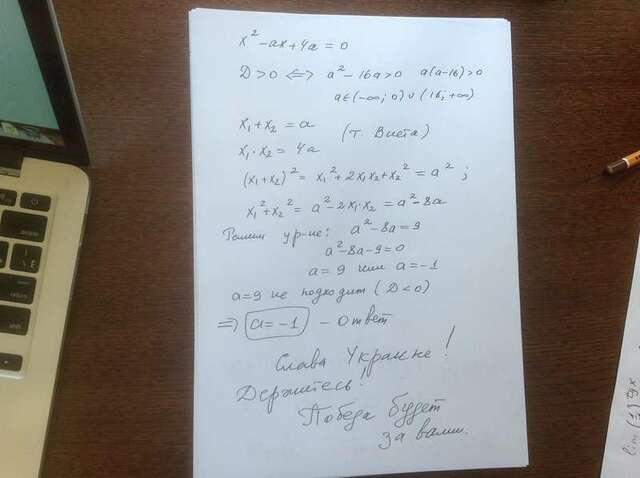 x² - ax + 4a = 0
D > 0 ⟺ a² - 16a > 0 a(a-16) > 0
a ∈ (-∞; 0) ∪ (16; +∞)
x₁ + x₂ = a
(т. Виета)
x₁ · x₂ = 4a
(x₁ + x₂)² = x₁² + 2x₁x₂ + x₂² = a² ;
x₁² + x₂² = a² - 2x₁·x₂ = a² - 8a
Решим ур-ие: a² - 8a = 9
a² - 8a - 9 = 0
a = 9 или a = -1
a = 9 не подходит (D < 0)
⇒ a = -1 - ответ
Слава Украине!
Держитесь!
Победа будет
за вами.